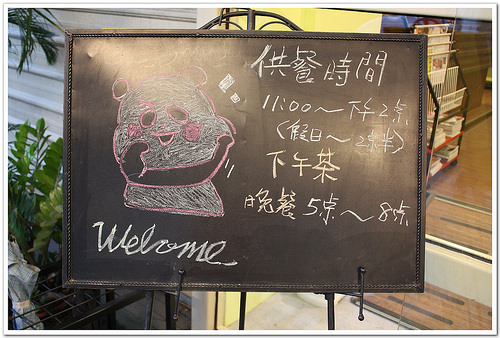 供餐時間
11:00～下午2点
(假日～2点半)
下午茶
晚餐 5点～8点
Welcome